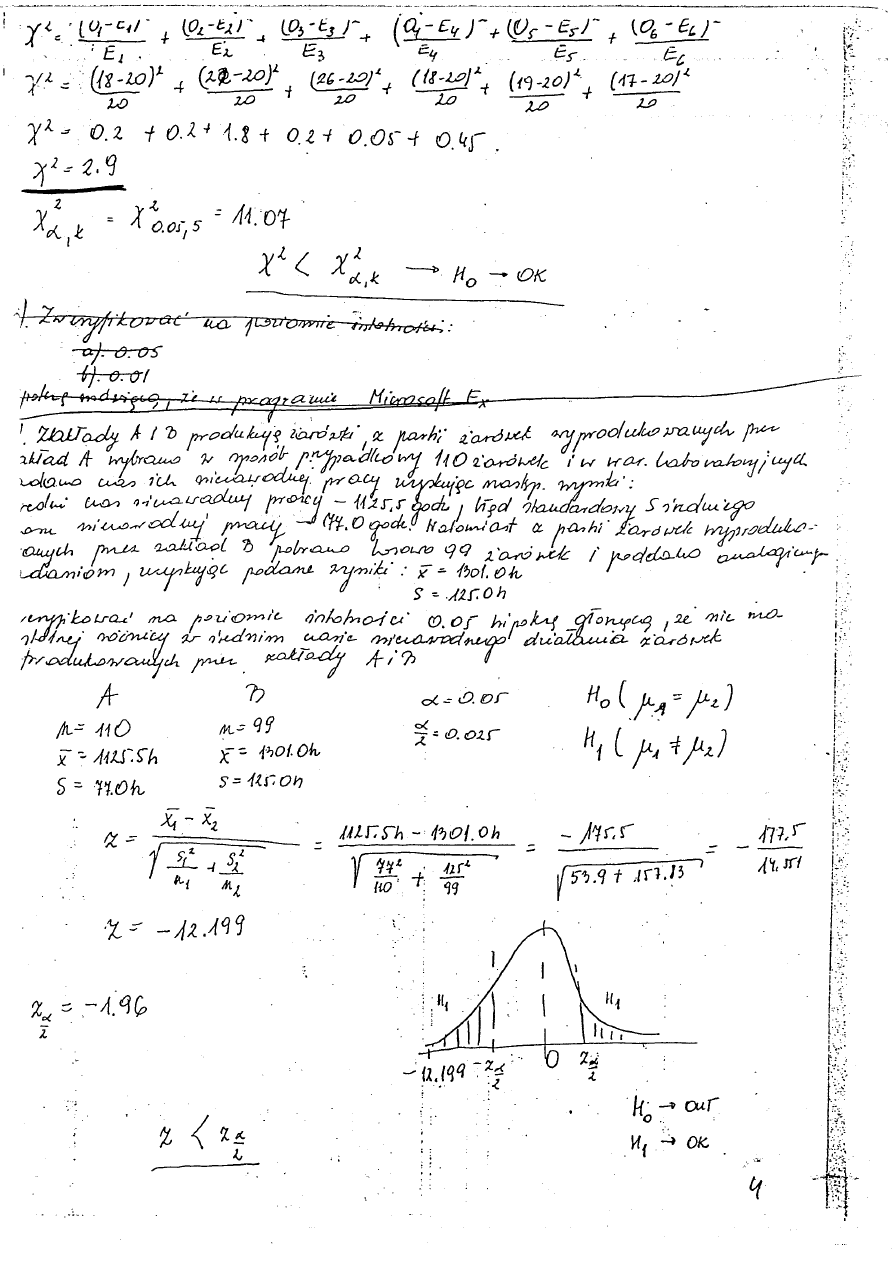 χ² = (O₁-E₁)²/E₁ + (O₂-E₂)²/E₂ + (O₃-E₃)²/E₃ + (O₄-E₄)²/E₄ + (O₅-E₅)²/E₅ + (O₆-E₆)²/E₆
χ² = (18-20)²/20 + (22-20)²/20 + (26-20)²/20 + (18-20)²/20 + (19-20)²/20 + (17-20)²/20
χ² = 0.2 + 0.2 + 1.8 + 0.2 + 0.05 + 0.45.
χ² = 2.9
χ²α,k = χ²0.05,5 = 11.07
χ² < χ²α,k → H₀ → OK
Zweryfikować na poziomie istotności:
a). 0.05
b). 0.01
że w programie Microsoft Ex
Zakłady A i B produkują żarówki, z partii żarówek wyprodukowanych przez
zkład A wybrano w sposób przypadkowy 110 żarówek i w war. laboratoryjnych
zdano czas ich niezawodnej pracy uzyskując następ. wyniki:
redni czas niezawodnej pracy - 1125.5 godz, błąd standardowy S średniego
asu niezawodnej pracy - 77.0 godz. Natomiast z partii żarówek wyproduko-
wanych przez zakład B pobrano losowo 99 żarówek i poddano analogicznym
adaniom, uzyskując podane wyniki: x̄ = 1301.0h
S = 125.0h
eryfikować na poziomie istotności 0.05 hipotezę głoszącą, że nie ma
istotnej różnicy w średnim czasie niezawodnego działania żarówek
produkowanych przez zakłady A i B
A B α = 0.05 H₀ (μ₁ = μ₂)
n = 110 n = 99 α/2 = 0.025 H₁ (μ₁ ≠ μ₂)
x̄ = 1125.5h x̄ = 1301.0h
S = 77.0h S = 125.0h
z = (x̄₁ - x̄₂)/√(S₁²/n₁ + S₂²/n₂) = (1125.5h - 1301.0h)/√(77²/110 + 125²/99) = -175.5/√(53.9 + 157.83) = -177.5/14.551
z = -12.199
zα/2 = -1.96
H₁ H₁
-12.199 -zα/2 0 zα/2
H₀ → OUT
z < zα/2
H₁ → OK
4